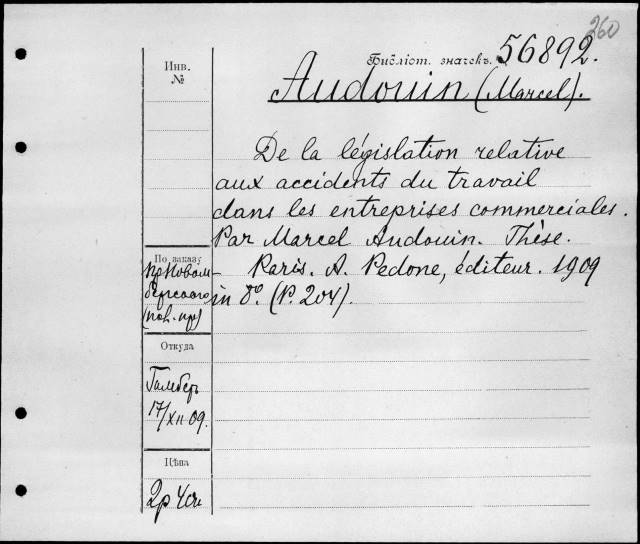 260
Библіот. значекъ. 56892.
Инв.
№
Audouin (Marcel).
De la législation relative
aux accidents du travail
dans les entreprises commerciales.
Par Marcel Audouin. Thèse.
Paris. A. Pedone, éditeur. 1909
in 8º. (P. 204).
По заказу
Откуда
17/XII 09.
Цѣна
2р